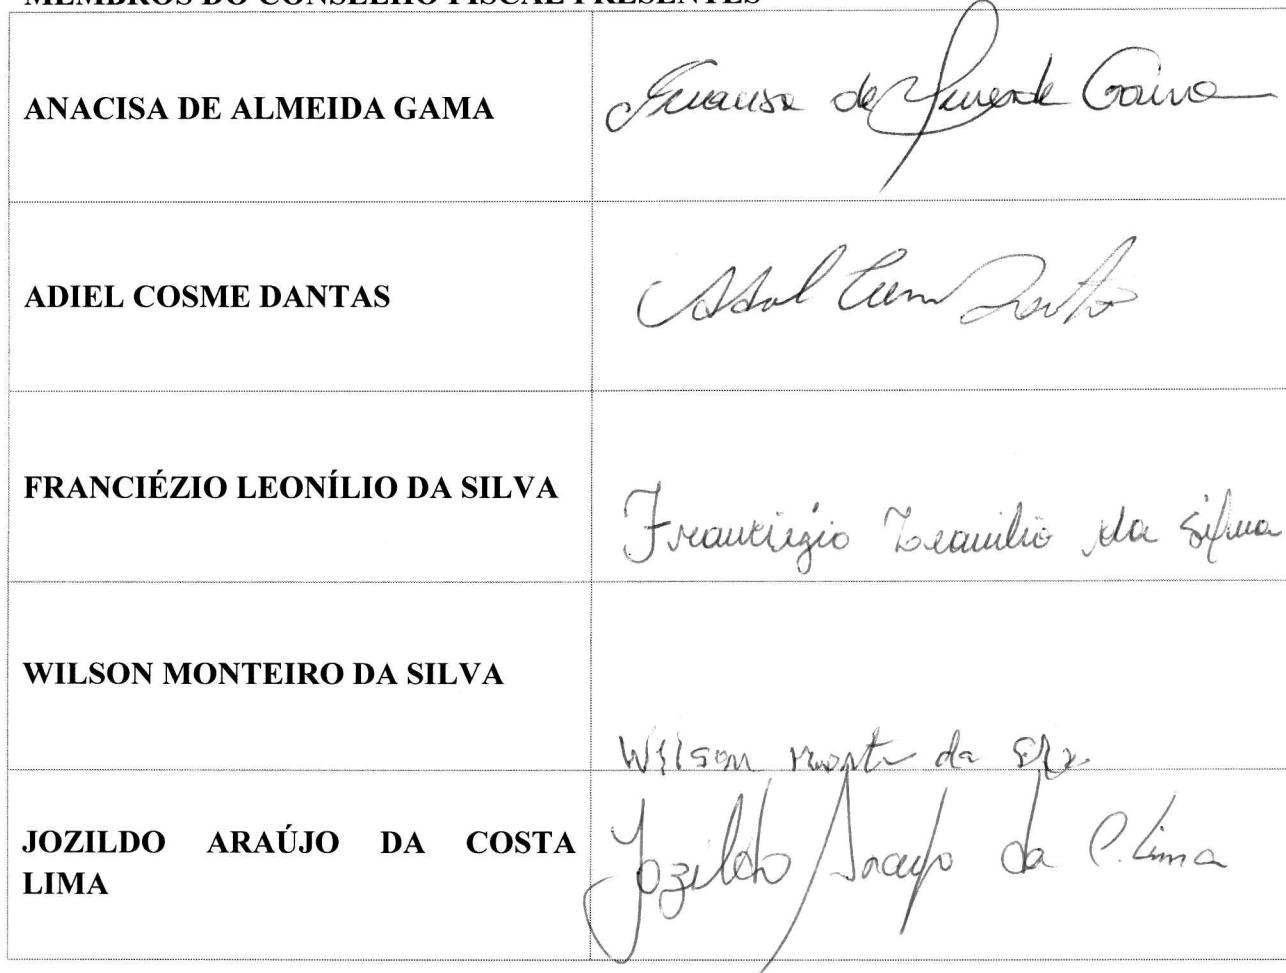 MEMBROS DO CONSELHO FISCAL PRESENTES
ANACISA DE ALMEIDA GAMA
de Gama
ADIEL COSME DANTAS
FRANCIÉZIO LEONÍLIO DA SILVA
Franciézio Leonilio da Silva
WILSON MONTEIRO DA SILVA
Wilson da
JOZILDO ARAÚJO DA COSTA
LIMA
Jozildo Araujo da C. Lima